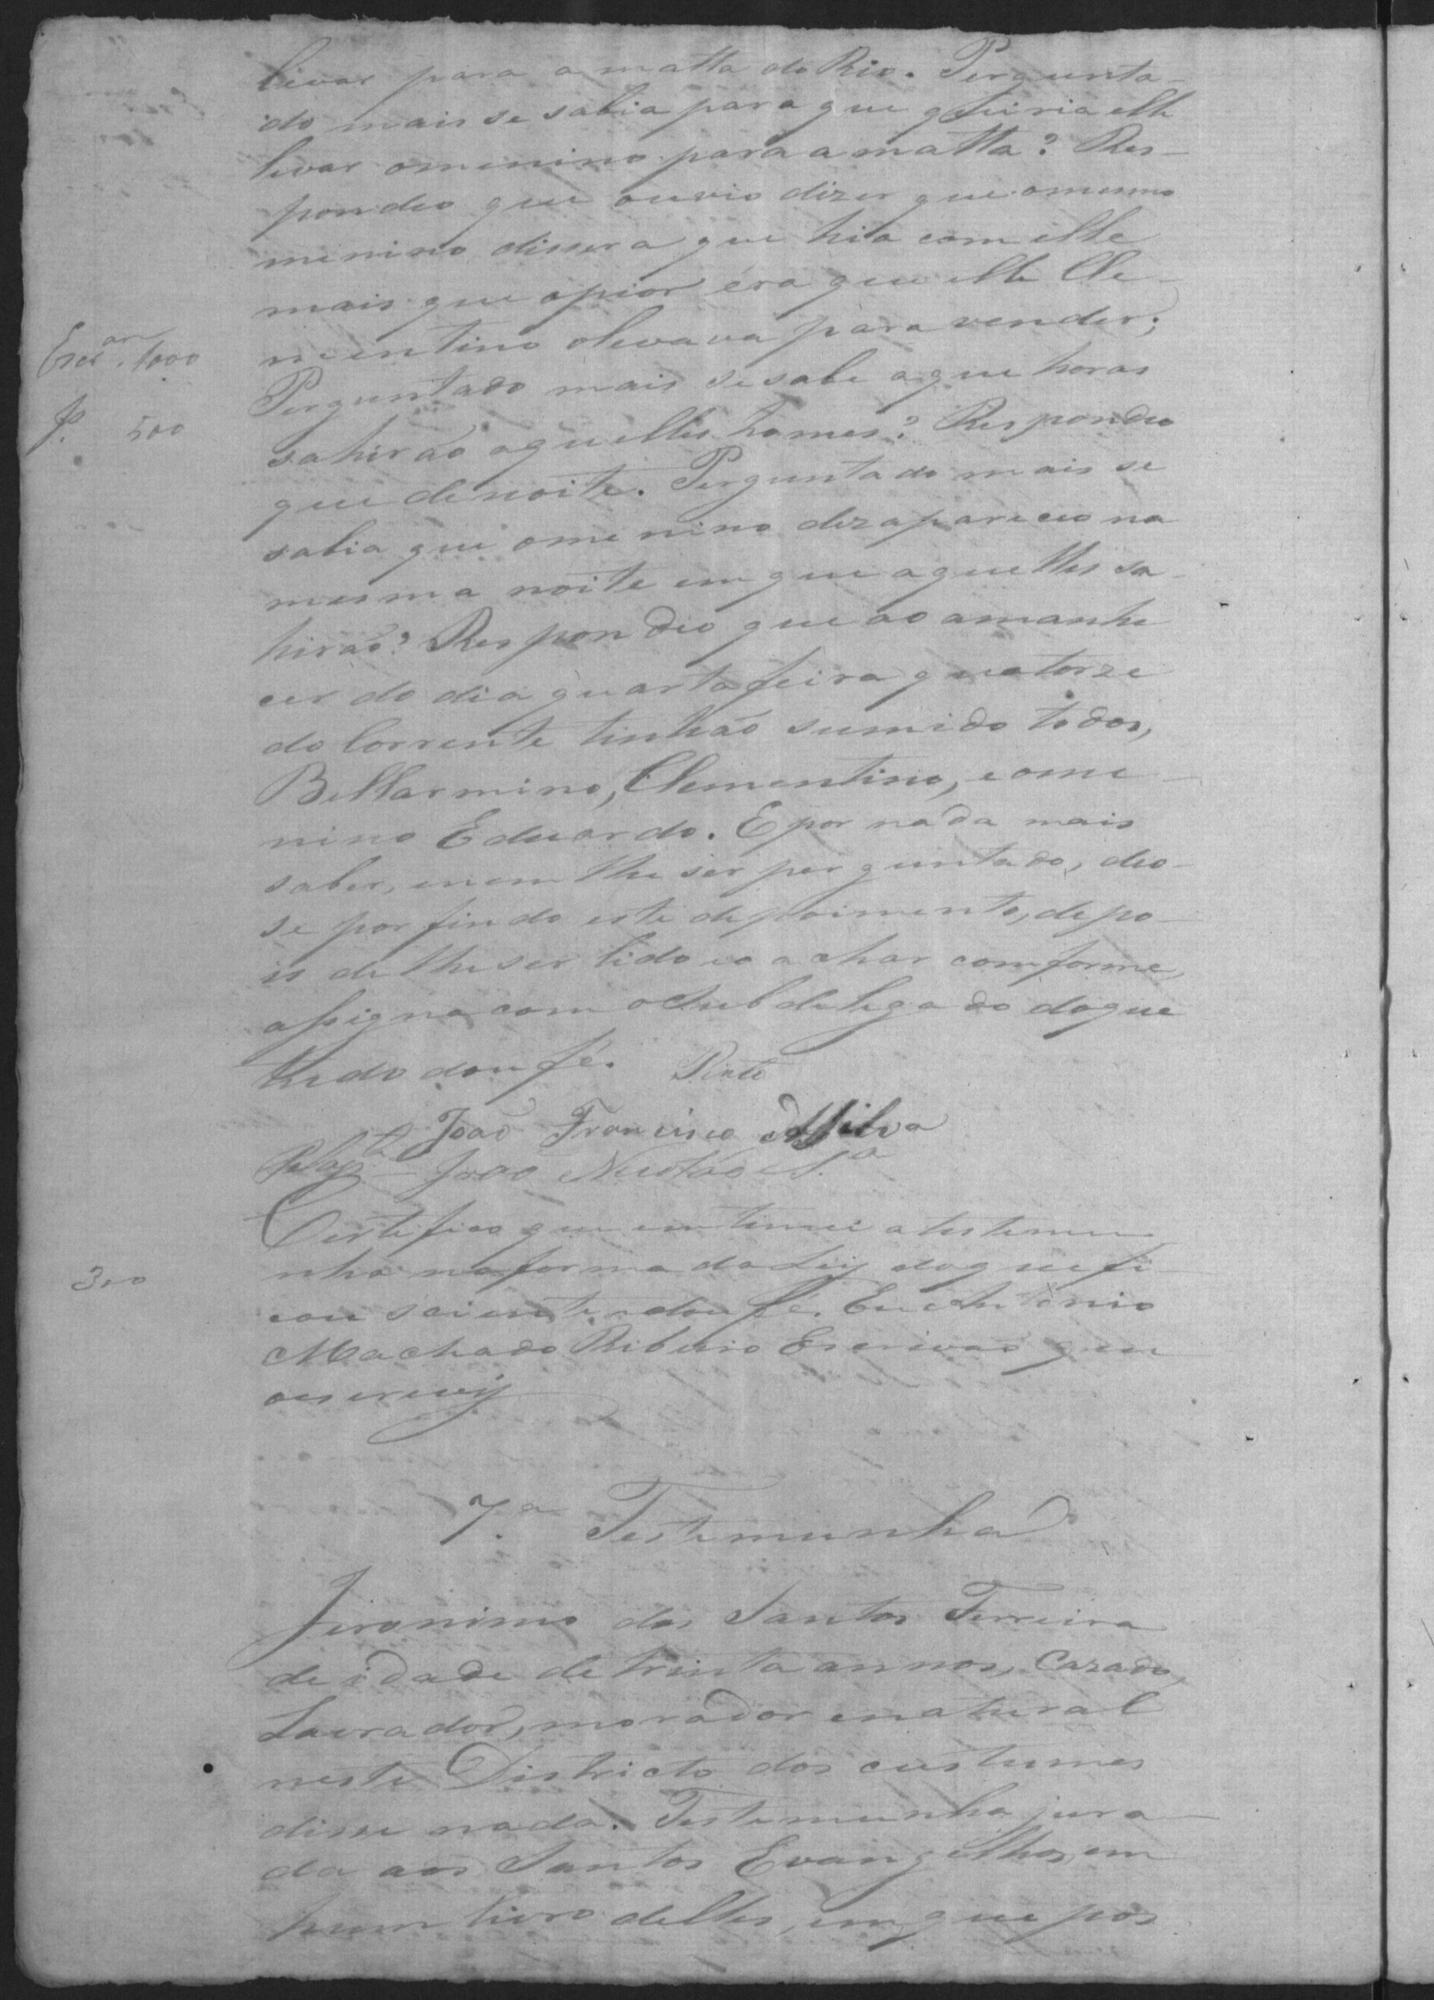 levar para a matta do Rio. Pergunta-
do mais se sabia para que queria elle
levar omenino para a matta? Res-
pondeo que ouvio dizer que omesmo
menino dissera que hia com elle
mais que opior éra que elle Cle-
mentino olevava para vender;
Perguntado mais sesabe aque horas
sahirão aquelles homes? Respondeo
que denoite. Perguntado mais se
sabia que omenino dezapareceo na
mesma noite em que aquelles sa-
hirão? Respondeo que ao amanhe
cer do dia quarta feira quatorze
do Corrente tinhão sumido todos,
Bellarmino, Clementino, e ome-
nino Eduardo. E por nada mais
saber, enem lhe ser perguntado, deo-
se por findo este depoimento, depo-
is de lhe ser lido eo achar comforme,
assigna com o Subdelegado doque
tudo dou fé.
João Francisco da Silva
João
Certifico que entimei a testemu-
nha na forma da Ley doque fi-
cou sciente edou fé. Eu Antonio
Machado Ribeiro Escrivão que
oescrevy
7.ª Testemunha
Jeronimo dos Santos Ferreira
de idade de trinta annos, Cazado,
Lavrador, morador enatural
neste Districto dos custumes
disse nada. Testemunha jura-
da aos Santos Evangelhos, em
hum livro delles, em que pos
1000
500
300